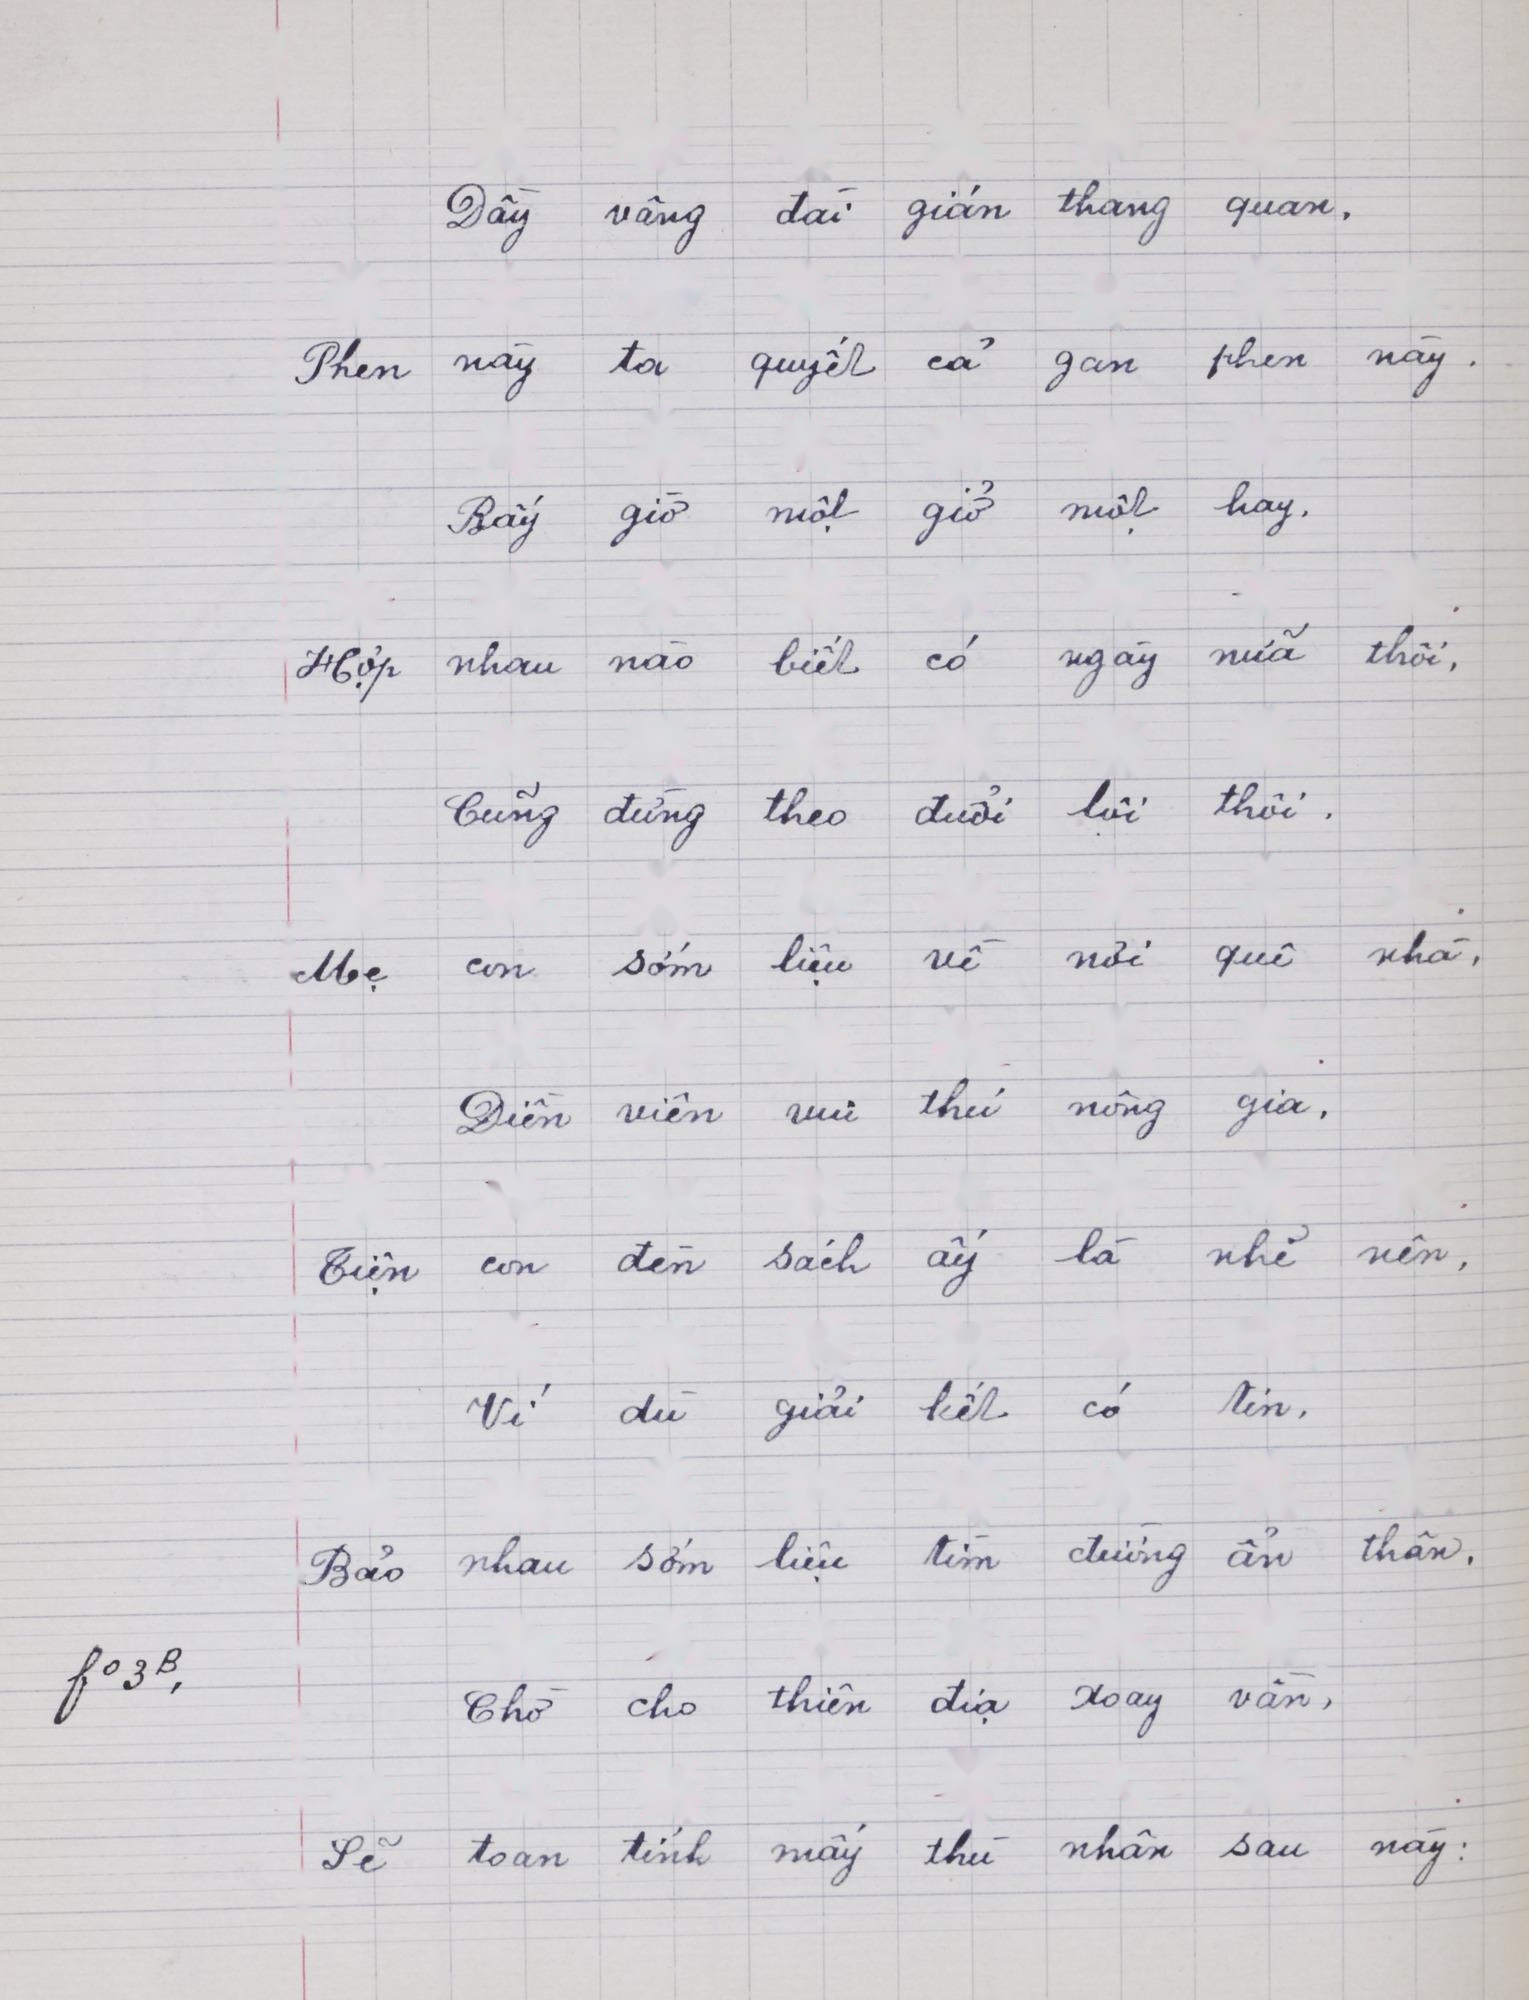 Dầy vâng đài gián thang quan,
Phen này ta quyết cả gan phen này.
Bấy giờ một giở một hay,
Hợp nhau nào biết có ngày nữa thôi,
Cũng đừng theo đuổi lôi thôi.
Mẹ con sớm liệu về nơi quê nhà,
Điền viên vui thú nông gia,
Tiện con đèn sách ấy là nhẽ nên,
Ví dù giải kết có tin,
Bảo nhau sớm liệu tìm đường ẩn thân,
fº 3B,
Chờ cho thiên địa xoay vần,
Sẽ toan tính mấy thù nhân sau này: